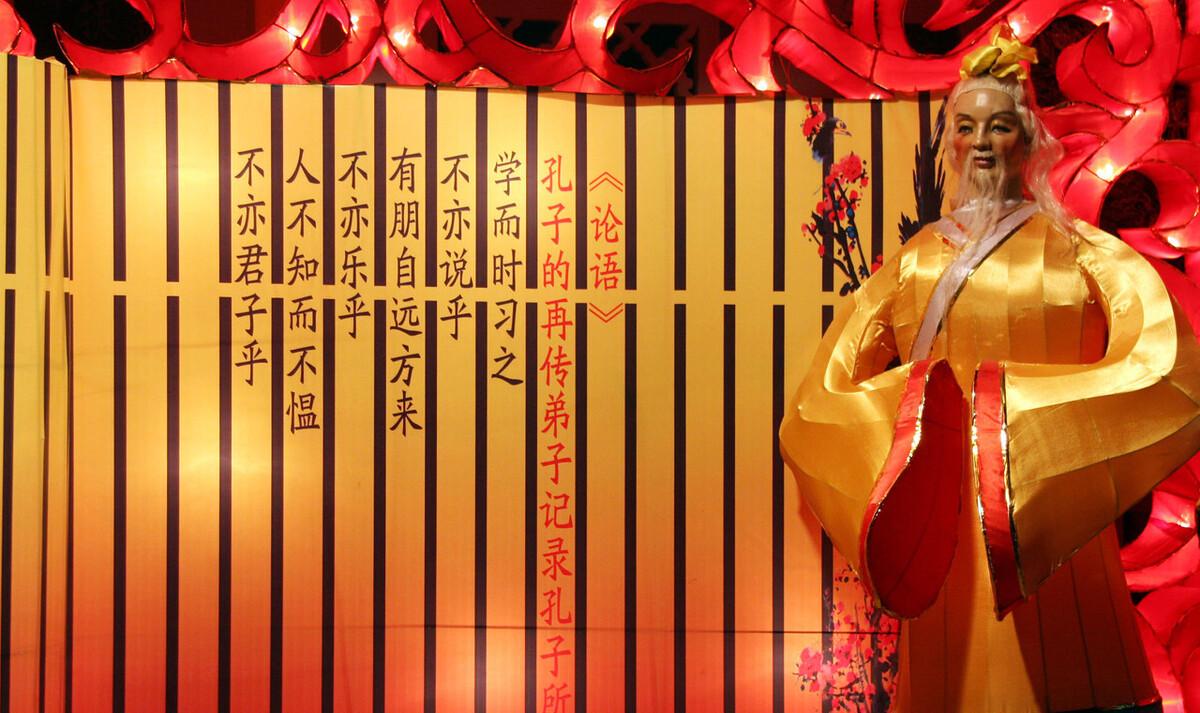 《论语》
孔子的再传弟子记录孔子所
学而时习之
不亦说乎
有朋自远方来
不亦乐乎
人不知而不愠
不亦君子乎